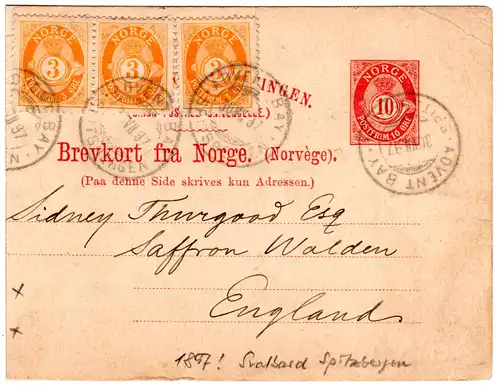 NORGE NORGE NORGE NORGE
3 3 3 10
POSTFRIM. 10 ØRE
ADVENT BAY
Brevkort fra Norge. (Norvège).
(Paa denne Side skrives kun Adressen.)
Sidney Thurgood Esq
Saffron Walden
England
1897! Svalbard Spitzbergen